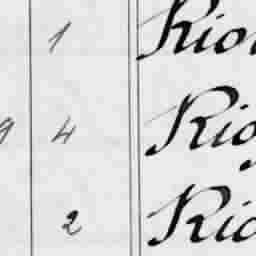 1 Rio
9 4 Rio
2 Rio